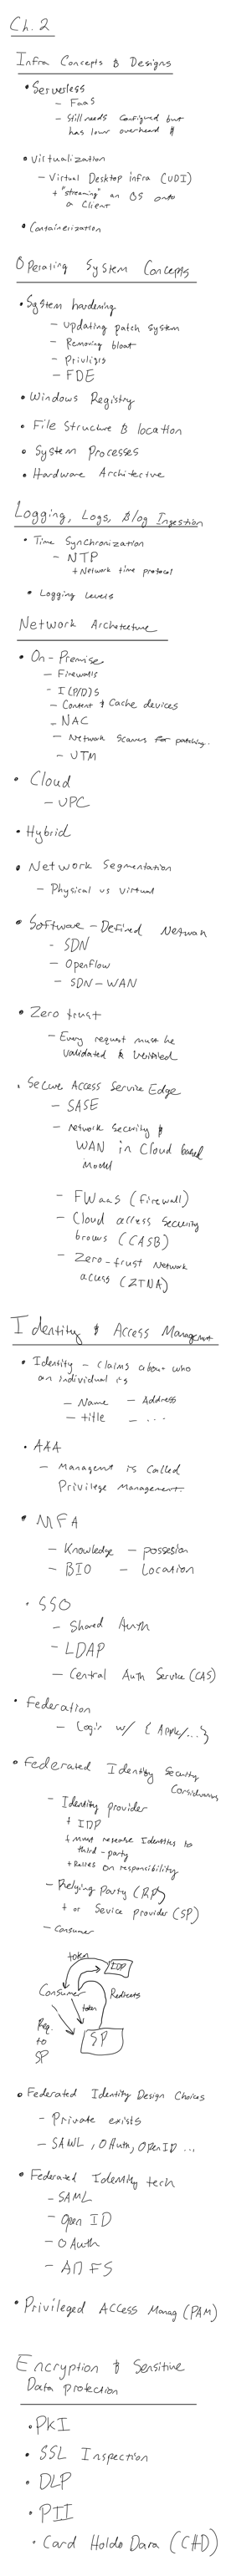 Ch. 2
Infra Concepts & Designs
• Serverless
- FaaS
- Still needs configured but
has low overhead $
• Virtualization
- Virtual Desktop infra (UDI)
+ "streaming" an OS onto
a client
• Containerization
Operating System Concepts
• System hardening
- updating patch system
- Removing bloat
- Priviligs
- FDE
• Windows Registry
• File Structure & location
• System Processes
• Hardware Architective
Logging, Logs, & log Ingestion
• Time Synchronization
- NTP
+ Network time protocol
• Logging Levels
Network Architecture
• On-Premise
- Firewalls
- I(P/D)S
- Content & Cache devices
- NAC
- Network Scanners for patching.
- UTM
• Cloud
- VPC
• Hybrid
• Network Segmentation
- Physical vs Virtual
• Software-Defined Network
- SDN
- Openflow
- SDN-WAN
• Zero trust
- Every request must be
validated & verified
• Secure Access Service Edge
- SASE
- Network Security &
WAN in Cloud based
model
- FWaaS (firewall)
- Cloud access Security
(CASB)
- Zero-trust Network
access (ZTNA)
Identity & Access Management
• Identity - Claims about who
an individual is
- Name - Address
- title - ...
• AAA
- Managent is Called
Privilege Management.
• MFA
- Knowledge - possesion
- BIO - Location
• SSO
- Shared Auth
- LDAP
- Central Auth Service (CAS)
• Federation
- Login w/ { Apple/...}
• Federated Identity Security
Considerations
- Identity provider
+ IDP
+ Must Identities to
third-party
+ Relies on responsibility
- Relying Party (RP)
+ or Sevice provider (SP)
- Consumer
token
IDP
Consumer
Redirects
token
Req.
to
SP
SP
• Federated Identity Design Choices
- Private exists
- SAML, OAuth, OpenID ...
• Federated Identity tech
- SAML
- Open ID
- OAuth
- AD FS
• Privileged Access Manag (PAM)
Encryption & Sensitive
Data Protection
• PKI
• SSL Inspection
• DLP
• PII
• Card Holde Dara (CHD)